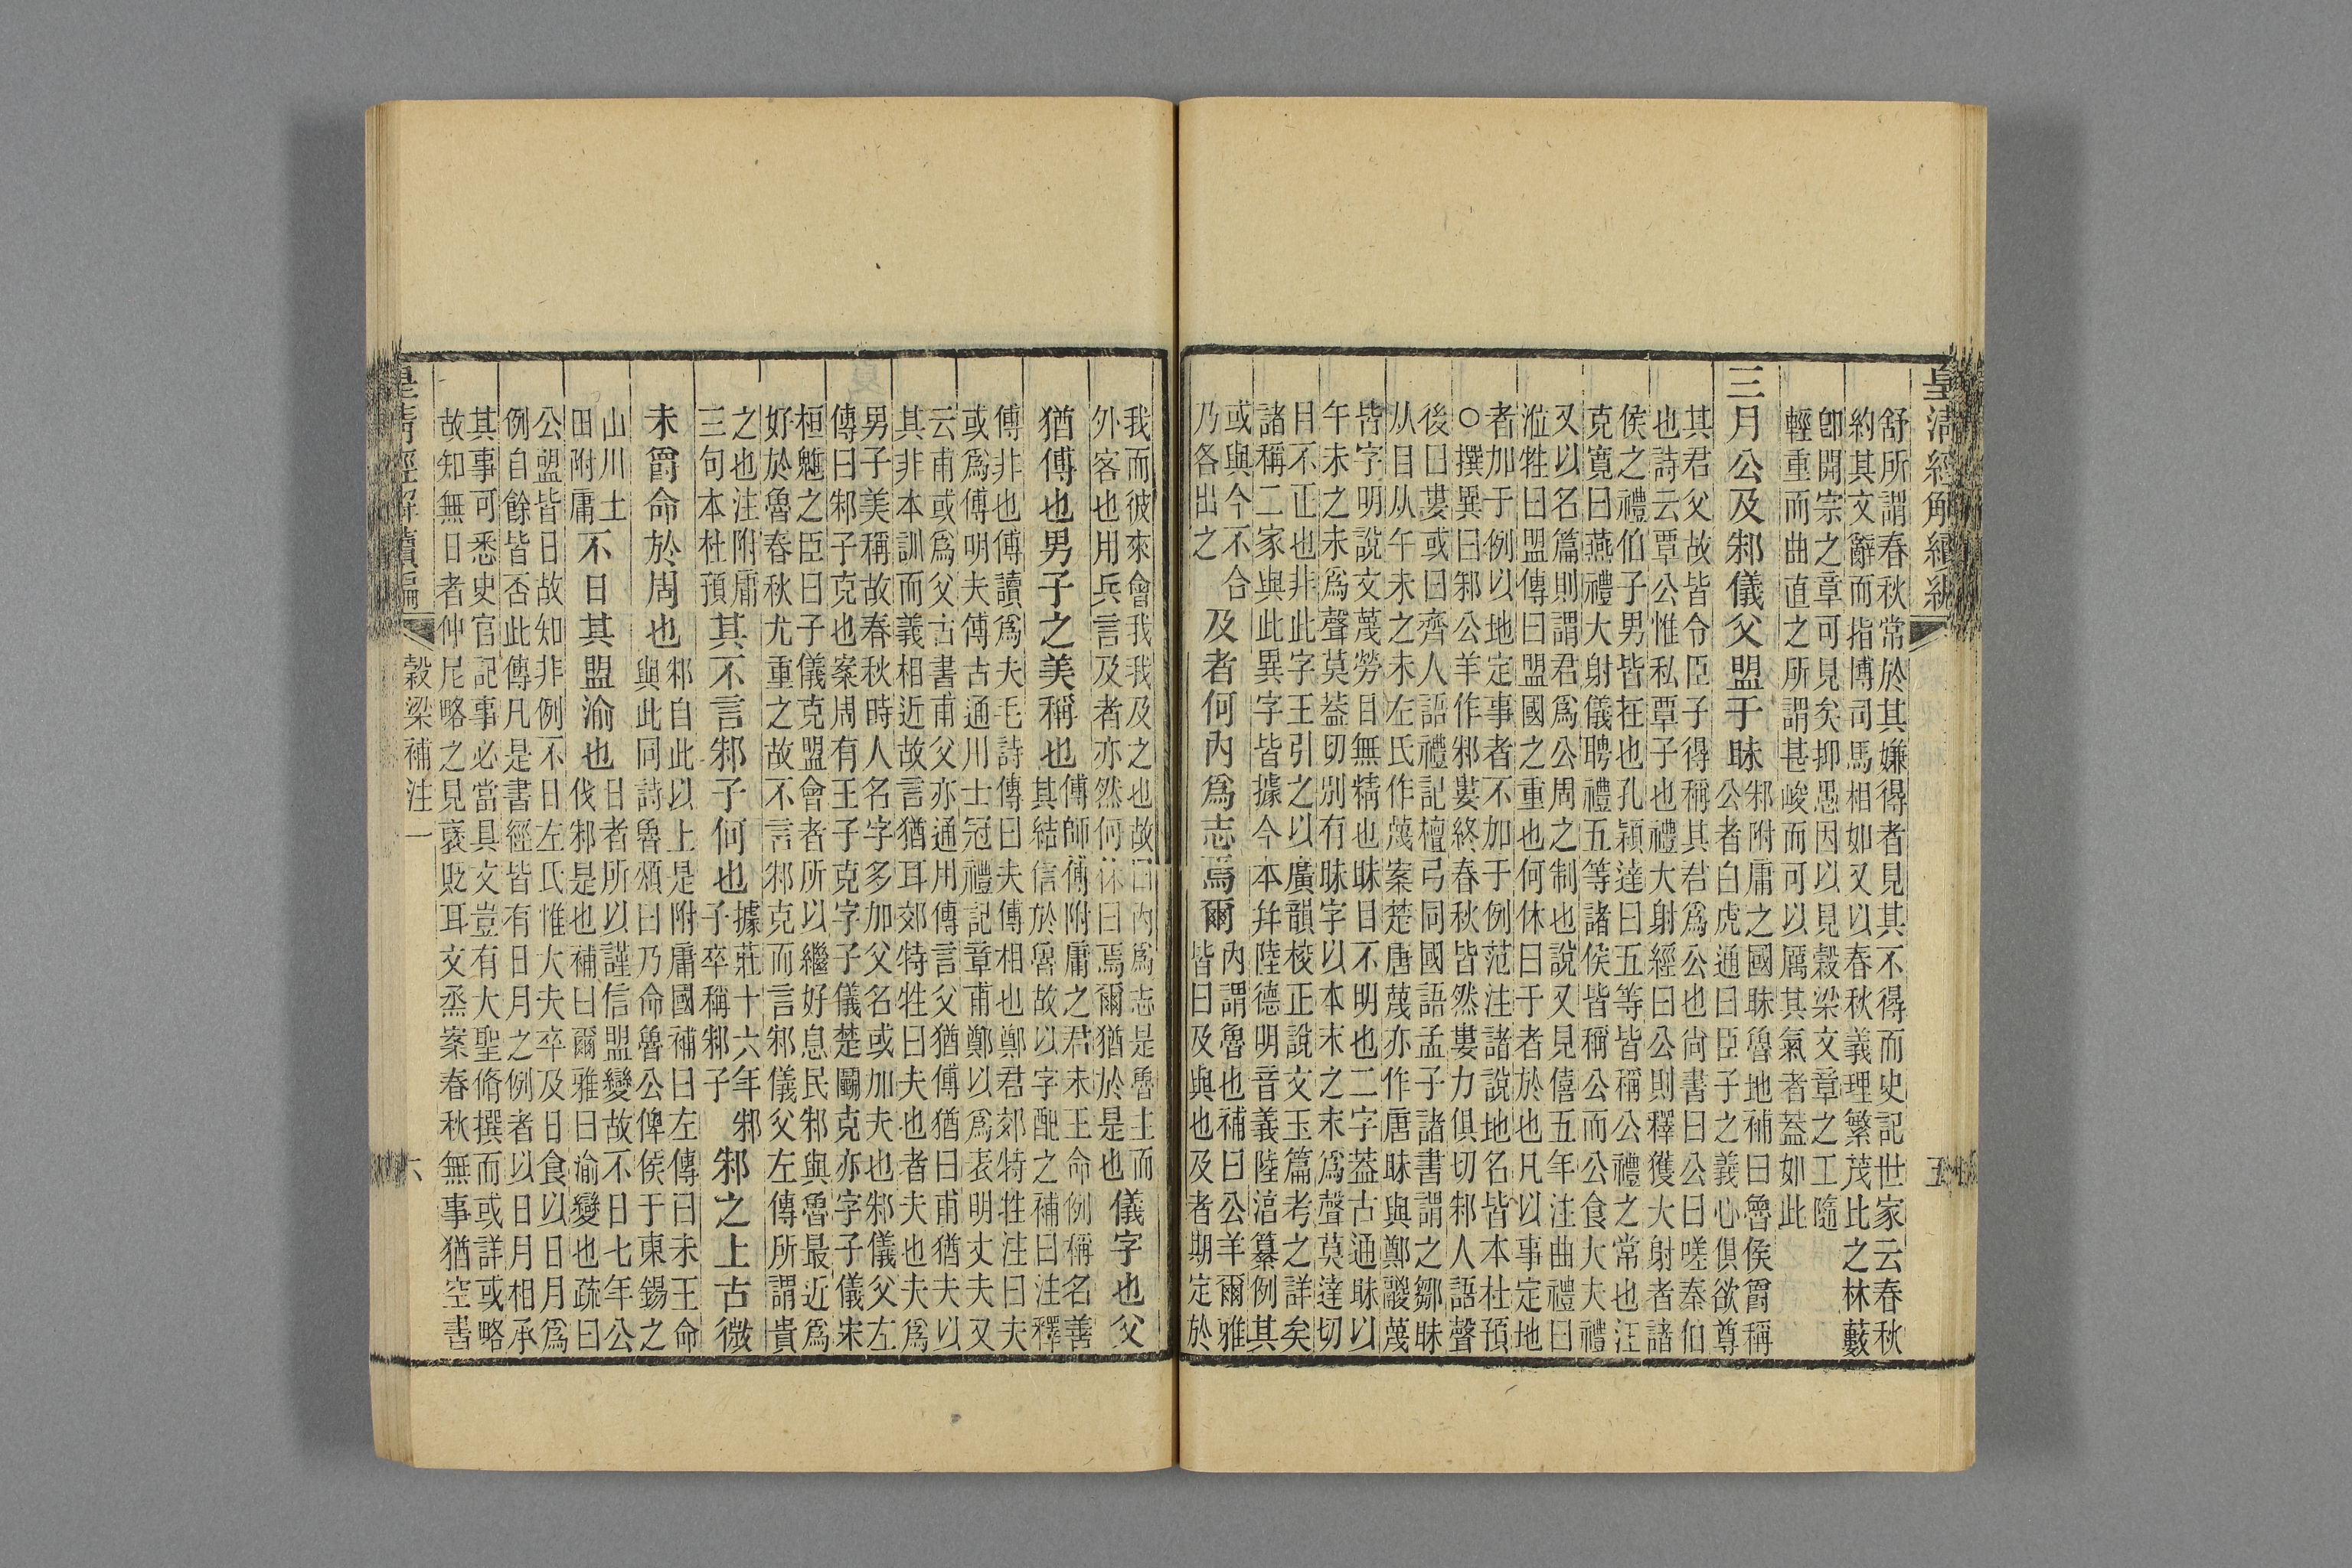 皇清經解續編
五
舒所謂春秋常於其嫌得者見其不得而史記世家云春秋
約其文辭而指博司馬相如又以春秋義理繁茂比之林藪
卽開宗之章可見矣抑愚因以見穀梁文章之工隨
輕重而曲直之所謂甚峻而可以厲其氣者蓋如此
三月公及邾儀父盟于眛
邾附庸之國眛魯地補曰魯侯爵稱
公者白虎通曰臣子之義心俱欲尊
其君父故皆令臣子得稱其君爲公也尙書曰公曰嗟秦伯
也詩云覃公惟私覃子也禮大射經曰公則釋獲大射者諸
侯之禮伯子男皆在也孔穎達曰五等皆稱公禮之常也汪
克寬曰燕禮大射儀聘禮五等諸侯皆稱公而公食大夫禮
又以名篇則謂君爲公周之制也說又見僖五年注曲禮曰
涖牲曰盟傳曰盟國之重也何休曰于者於也凡以事定地
者加于例以地定事者不加于例范注諸說地名皆本杜預
○撰異曰邾公羊作邾婁終春秋皆然婁力俱切邾人語聲
後曰婁或曰齊人語禮記檀弓同國語孟子諸書謂之鄒眛
从目从午未之未左氏作蔑案楚唐蔑亦作唐眛與鄭鬷蔑
皆字明說文蔑勞目無精也眛目不明也二字蓋古通眛以
午未之未爲聲莫葢切別有眜字以本末之末爲聲莫達切
目不正也非此字王引之以廣韻棱正說文玉篇考之詳矣
諸稱二家與此異字皆據今本幷陸德明音義陸湻纂例其
或與今不合
乃各出之
及者何內爲志焉爾
內謂魯也補曰公羊爾雅
皆曰及與也及者期定於
我而彼來會我我及之也故曰內爲志是魯主而
外客也用兵言及者亦然何休曰焉爾猶於是也
儀字也父
猶傅也男子之美稱也
傅師傅附庸之君未王命例稱名善
其結信於魯故以字配之補曰注釋
傅非也傅讀爲夫毛詩傳曰夫傅相也鄭君郊特牲注曰夫
或爲傅明夫傅古通川士冠禮記章甫鄭以爲表明丈夫又
云甫或爲父古書甫父亦通用傅言父猶傅猶曰甫猶夫以
其非本訓而義相近故言猶耳郊特牲曰夫也者夫也夫爲
男子美稱故春秋時人名字多加父名或加夫也邾儀父左
傳曰邾子克也案周有王子克字子儀楚鬭克亦字子儀宋
桓魋之臣曰子儀克盟會者所以繼好息民邾與魯最近爲
好於魯春秋尤重之故不言邾克而言邾儀父左傳所謂貴
之也注附庸
三句本杜預
其不言邾子何也
據莊十六年邾
子卒稱邾子
邾之上古微
未爵命於周也
邾自此以上是附庸國補曰左傳曰未王命
與此同詩魯頌曰乃命魯公俾侯于東錫之
山川土
田附庸
不日其盟渝也
日者所以謹信盟變故不日七年公
伐邾是也補曰爾雅曰渝變也疏曰
公盟皆日故知非例不日左氏惟大夫卒及日食以日月爲
例自餘皆否此傳凡是書經皆有日月之例者以日月相承
其事可悉史官記事必當具文豈有大聖脩撰而或詳或略
故知無日者仲尼略之見襃貶耳文烝案春秋無事猶空書
皇清經解續編
穀梁補注一
六